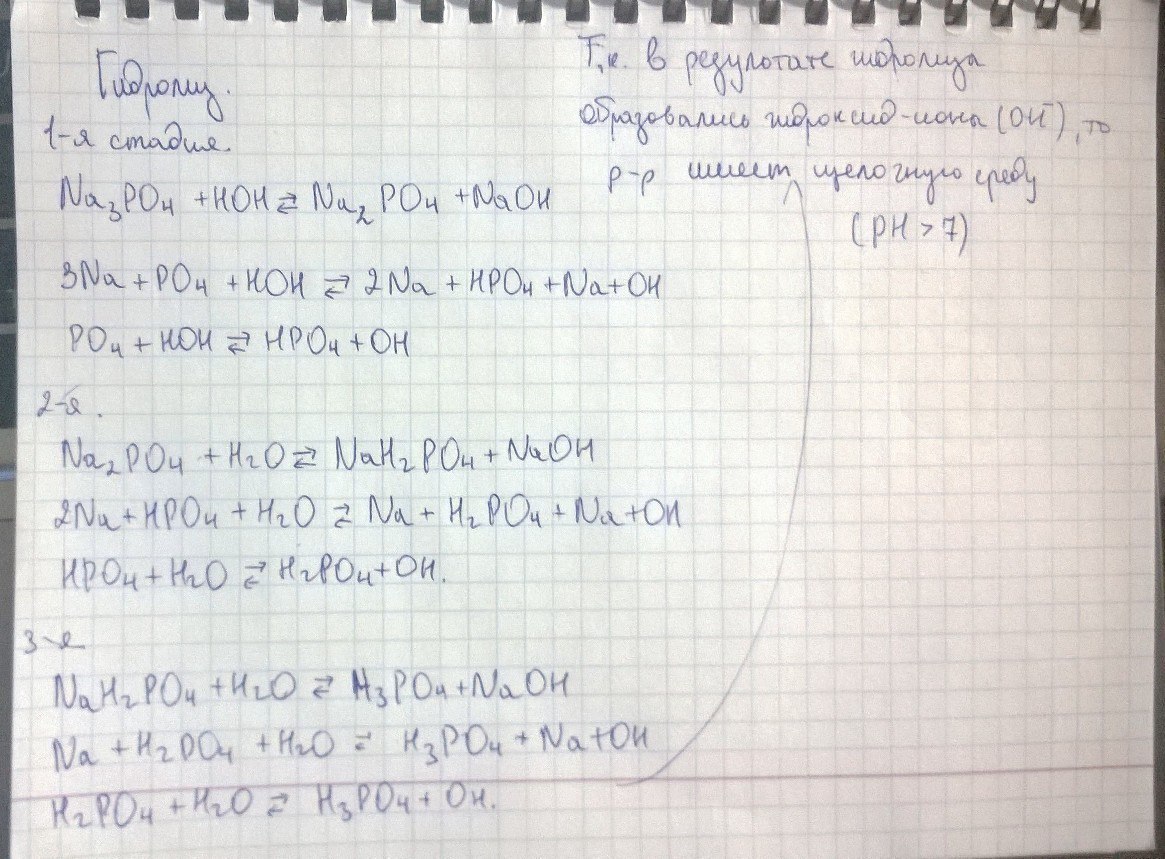 Гидролиз.
1-я стадия
Na₃PO₄ + HOH ⇄ Na₂PO₄ + NaOH
3Na + PO₄ + HOH ⇄ 2Na + HPO₄ + Na + OH
PO₄ + HOH ⇄ HPO₄ + OH
2-я.
Na₂PO₄ + H₂O ⇄ NaH₂PO₄ + NaOH
2Na + HPO₄ + H₂O ⇄ Na + H₂PO₄ + Na + OH
HPO₄ + H₂O ⇄ H₂PO₄ + OH.
3-я
NaH₂PO₄ + H₂O ⇄ H₃PO₄ + NaOH
Na + H₂PO₄ + H₂O ⇄ H₃PO₄ + Na + OH
H₂PO₄ + H₂O ⇄ H₃PO₄ + OH.
Т.к. в результате гидролиза
образовались гидроксид-ионы (OH⁻), то
р-р имеет щелочную среду
(PH > 7)